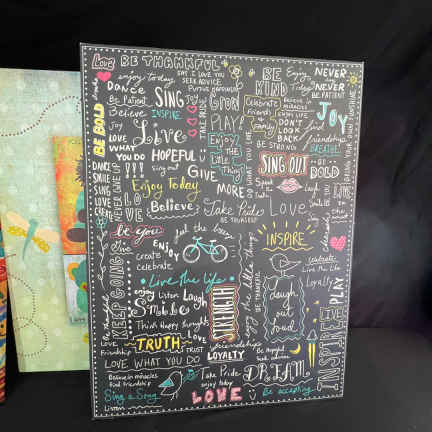 Love BE THANKFUL
SAY I LOVE YOU
enjoy today
SEEK ADVICE
DANCE
Be Patient
SING
Believe
INSPIRE
Joy
Live
LOVE
WHAT
YOU DO
HOPEFUL
BE BOLD
TAKE PRIDE
GROW
PLAY
Enjoy
the
Little
Things
BE
KIND
Enjoy
Today
NEVER
NEVER
BE PATIENT
Celebrate
Friends
&
Family
Believe in
miracles
ENJOY LIFE
DON'T
LOOK
BACK
BE STRONG
JOY
find
friendships
BREATHE
SING OUT
BE
BOLD
DO WHAT YOU LOVE
DANCE
SMILE
SING
LOVE
LIVE
CREATE
NEVER GIVE UP
!!!
LOVE
sing out
GIVE
MORE
Enjoy Today
Believe
Take Pride
BE YOURSELF
Love
Laugh
be you
Live
enjoy
Create
Celebrate
just the
INSPIRE
KEEP GOING
Live the life
enjoy Listen Laugh
Smile
Think Happy thoughts
TRUTH
LOVE
LOVE
Friendship
TRUST
LOVE WHAT YOU DO
Believe in miracles
Find friendship
Sing a Song
Listen
STRENGTH
enjoy the little things
BE THANKFUL
Laugh
out
loud
Celebrate
Live the Life
Loyalty
PLAY
LIVE
INSPIRE
friendships
LOYALTY
Be hopeful
Seek advice
Take Pride
enjoy today
LOVE
DREAM
Be accepting